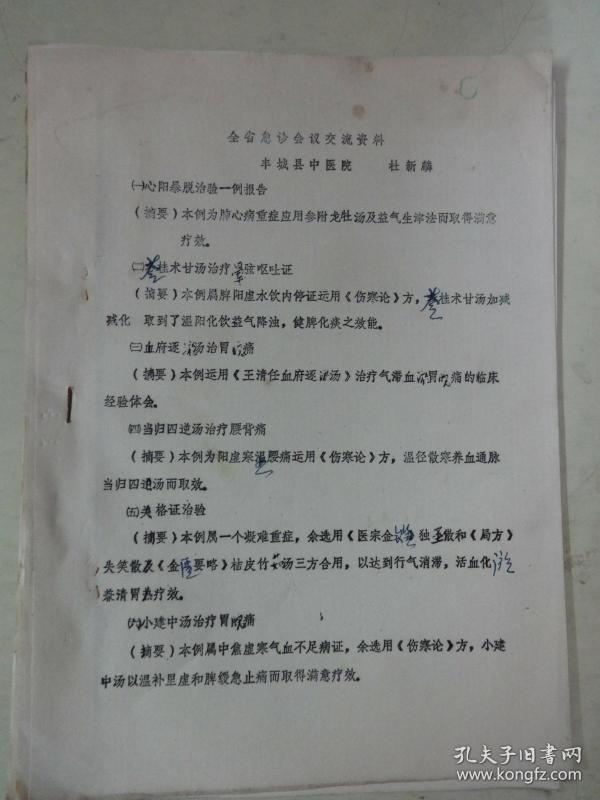 全省急诊会议交流资料
丰城县中医院 杜新麟
㈠心阳暴脱治验一例报告
(摘要)本例为肺心病重症应用参附龙牡汤及益气生津法而取得满意
疗效。
㈡苓桂术甘汤治疗晕眩呕吐证
(摘要)本例属脾阳虚水饮内停证运用《伤寒论》方,苓桂术甘汤加减
减化 取到了温阳化饮益气降浊,健脾化痰之效能。
㈢血府逐汤治胃脘痛
(摘要)本例运用《王清任血府逐汤》治疗气滞血胃脘痛的临床
经验体会。
㈣当归四逆汤治疗腰背痛
(摘要)本例为阳虚寒湿腰痛运用《伤寒论》方,温径散寒养血通脉
当归四逆汤而取效。
㈤关格证治验
(摘要)本例属一个凝难重症,余选用《医宗金鉴》独圣散和《局方》
失笑散及《金匮要略》桔皮竹茹汤三方合用,以达到行气消滞,活血化
养清胃热疗效。
㈥小建中汤治疗胃脘痛
(摘要)本例属中焦虚寒气血不足病证,余选用《伤寒论》方,小建
中汤以温补里虚和脾缓急止痛而取得满意疗效。
孔夫子旧书网
www.kongfz.com